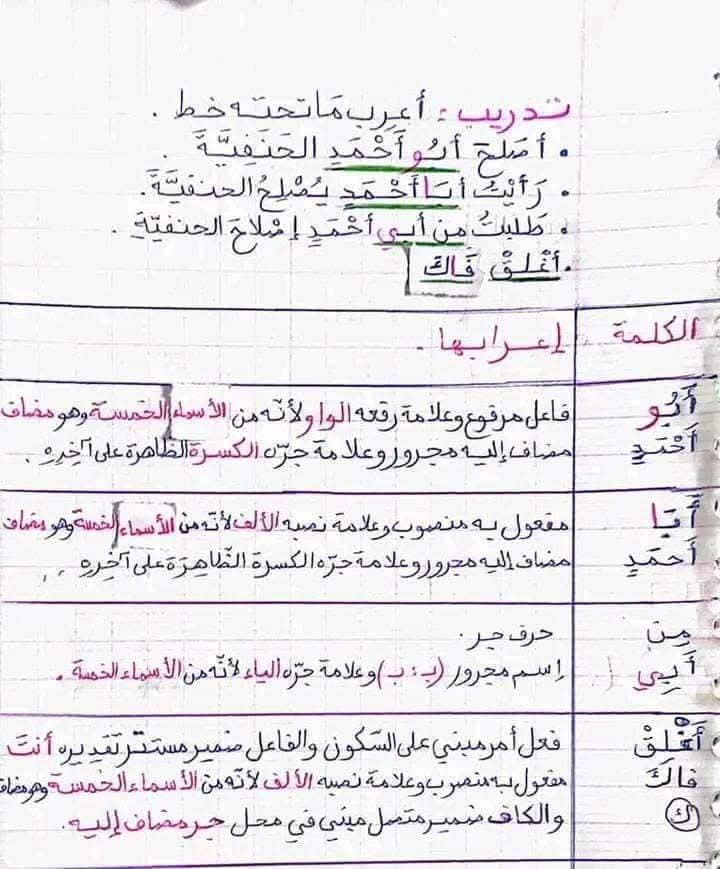 تدريب : أعرب ما تحته خط .
• أَصْلَحَ أَبُو أَحْمَدٍ الحَنَفِيَّةَ .
• رَأَيْتُ أَبَا أَحْمَدٍ يُصْلِحُ الحنفيَّةَ .
• طَلبتُ مِن أبِي أَحْمَدٍ إِصْلاحَ الحنفيّةِ .
• أَغْلِقْ فَاكَ
الكلمة إعرابها .
أَبُو فاعل مرفوع وعلامة رفعه الواو لأنّه من الأسماء الخمسة وهو مضاف
أَحْمَدٍ مضاف إليه مجرور وعلامة جرّه الكسرة الظاهرة على آخِرِهِ .
أَبَا مفعول به منصوب وعلامة نصبه الألف لأنّه من الأسماء الخمسة وهو مضاف
أَحمَدٍ مضاف إليه مجرور وعلامة جرّه الكسرة الظّاهِرَة على آخِرِهِ .
مِن حرف جر .
أَبِي إسم مجرور (بـ : ب) وعلامة جرّه الياء لأنّه من الأسماء الخمسة .
أَغْلِقْ فعل أمر مبني على السّكون والفاعل ضمير مستتر تقديره أنتَ
فاكَ مفعول به منصوب وعلامة نصبه الألف لأنّه من الأسماء الخمسة وهو مضاف
ك والكاف ضمير متصل مبني في محل جر مضاف إليه .